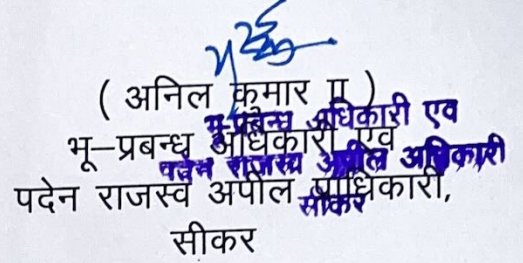 ( अनिल कुमार II )
भू–प्रबन्ध अधिकारी एवं
पदेन राजस्व अपील प्राधिकारी,
सीकर
भू-प्रबन्ध अधिकारी एव
पदेन राजस्व अपील अधिकारी
सीकर